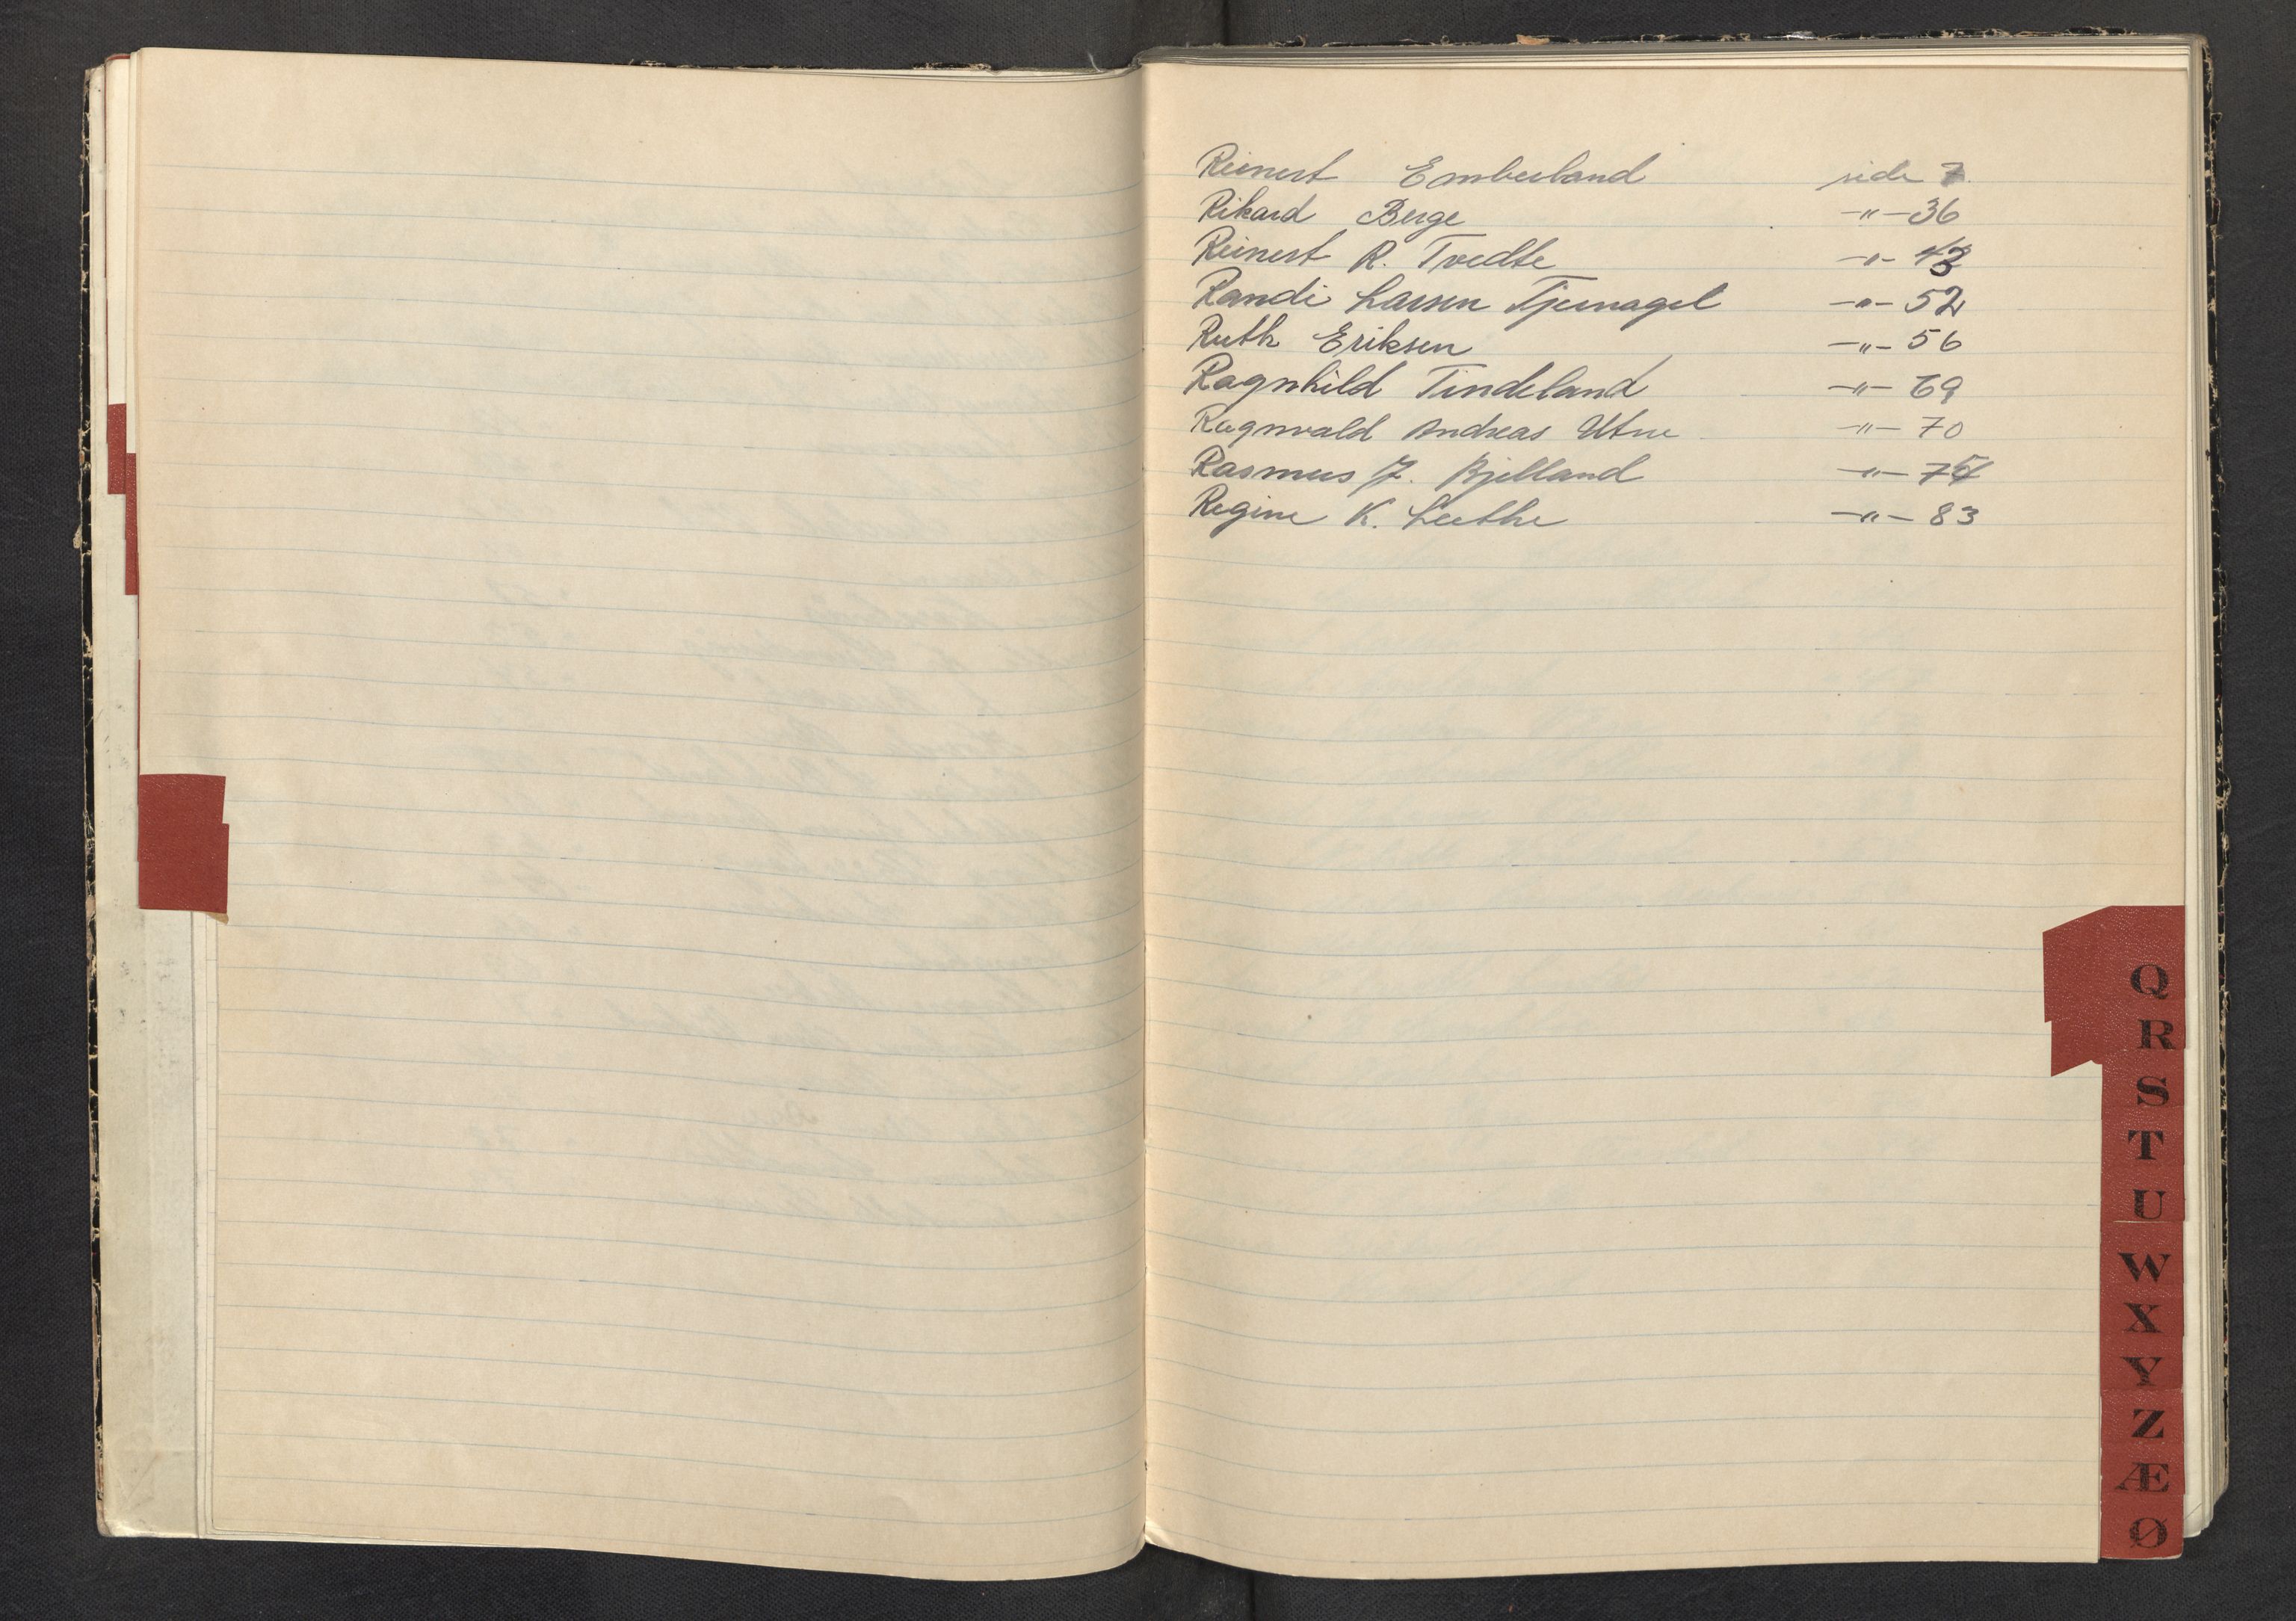 Reinert Emberland side 7.
Rikard Berge -"- 36
Reinert R. Tvedte -"- 43
Randi Larsen Tjernagel -"- 52
Ruth Eriksen -"- 56
Ragnhild Tindeland -"- 69
Ragnvald Andreas Utne -"- 70
Rasmus J. Bjelland -"- 74
Regine K. Leethe -"- 83
Q
R
S
T
U
W
X
Y
Z
Æ
Ø